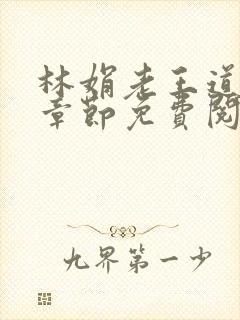 林娟老王道
章節免費閱
九界第一少